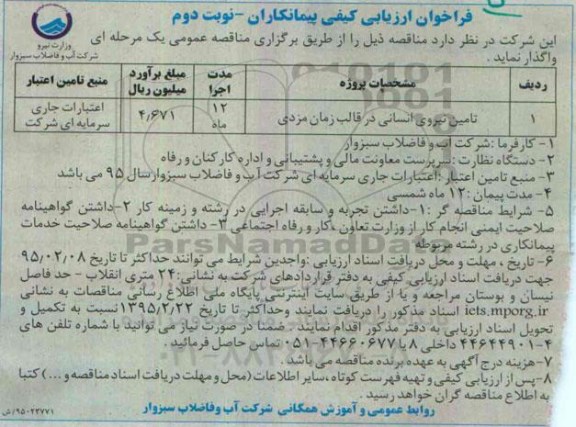 فراخوان ارزیابی کیفی پیمانکاران -نوبت دوم
وزارت نیرو
شرکت آب و فاضلاب سبزوار
این شرکت در نظر دارد مناقصه ذیل را از طریق برگزاری مناقصه عمومی یک مرحله ای
واگذار نماید .
ردیف مشخصات پروژه مدت اجرا مبلغ برآورد میلیون ریال منبع تامین اعتبار
۱ تامین نیروی انسانی در قالب زمان مزدی ۱۲ ماه ۴,۶۷۱ اعتبارات جاری سرمایه ای شرکت
۱- کارفرما :شرکت آب و فاضلاب سبزوار
۲- دستگاه نظارت :سرپرست معاونت مالی و پشتیبانی و اداره کارکنان و رفاه
۳- منبع تامین اعتبار :اعتبارات جاری سرمایه ای شرکت آب و فاضلاب سبزوار سال ۹۵ می باشد
۴-مدت پیمان :۱۲ ماه شمسی
۵- شرایط مناقصه گر :۱-داشتن تجربه و سابقه اجرایی در رشته و زمینه کار ۲-داشتن گواهینامه
صلاحیت ایمنی انجام کار از وزارت تعاون ،کار و رفاه اجتماعی ۳- داشتن گواهینامه صلاحیت خدمات
پیمانکاری در رشته مربوطه
۶- تاریخ ، مهلت و محل دریافت اسناد ارزیابی :واجدین شرایط می توانند حداکثر تا تاریخ ۹۵/۰۲/۰۸
جهت دریافت اسناد ارزیابی کیفی به دفتر قراردادهای شرکت به نشانی:۲۴ متری انقلاب - حد فاصل
نیسان و بوستان مراجعه و یا از طریق سایت اینترنتی پایگاه ملی اطلاع رسانی مناقصات به نشانی
iets.mporg.ir اسناد مذکور را دریافت نمایند وحداکثر تا تاریخ ۱۳۹۵/۲/۲۲نسبت به تکمیل و
تحویل اسناد ارزیابی به دفتر مذکور اقدام نمایند . ضمنا در صورت نیاز می توانید با شماره تلفن های
۴-۴۴۶۴۴۹۰۱ داخلی ۸ یا ۴۴۶۶۰۶۷۷-۰۵۱ تماس حاصل فرمائید .
۷-هزینه درج آگهی به عهده برنده مناقصه می باشد .
۸-پس از ارزیابی کیفی و تهیه فهرست کوتاه ،سایر اطلاعات (محل و مهلت دریافت اسناد مناقصه و ...) کتبا
به اطلاع مناقصه گران خواهد رسید .
روابط عمومی و آموزش همگانی شرکت آب وفاضلاب سبزوار
۹۵۰۲۲۷۷۱/ش
ParsNamadData